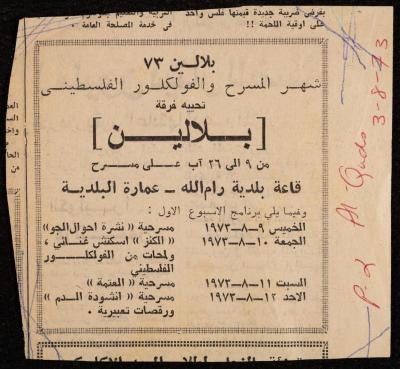 يفرض ضريبة جديدة قيمتها فلس واحد
على اوقية اللحمة !!
التربية والتعليم
في خدمة المصلحة العامة .
بلالين ٧٣
شهر المسرح والفولكلور الفلسطيني
تحييه فرقة
[ بلالين ]
من ٩ الى ٢٦ آب على مسرح
قاعة بلدية رام الله - عمارة البلدية
وفيما يلي برنامج الاسبوع الاول :
الخميس ٩-٨-١٩٧٣ مسرحية « نشرة احوال الجو »
الجمعة ١٠-٨-١٩٧٣ « الكنز » اسكتش غنائي ،
ولمحات من الفولكلور
الفلسطيني
السبت ١١-٨-١٩٧٣ مسرحية « العتمة »
الاحد ١٢-٨-١٩٧٣ مسرحية « انشودة الدم »
ورقصات تعبيرية .
P.2 Al Quds 3-8-73